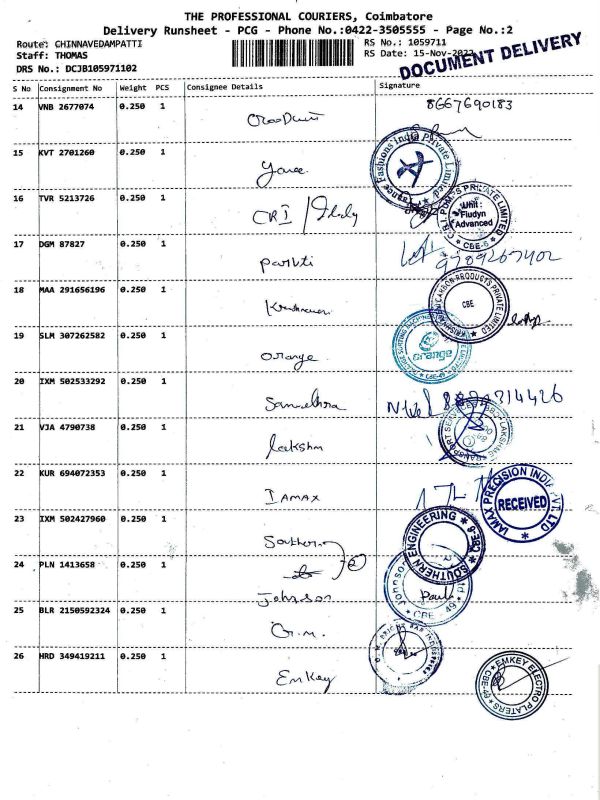 THE PROFESSIONAL COURIERS, Coimbatore
Delivery Runsheet - PCG - Phone No.:0422-3505555 - Page No.:2
Route: CHINNAVEDAMPATTI
RS No.: 1059711
Staff: THOMAS
RS Date: 15-Nov-2022
DRS No.: DCJB105971102
DOCUMENT DELIVERY
S No Consignment No Weight PCS Consignee Details Signature
14 VNB 2677074 0.250 1 8667690183
15 KVT 2701260 0.250 1
Fashions India Private Limited
16 TVR 5213726 0.250 1 CRI
C.R.I. PUMPS PRIVATE LIMITED Unit : Fludyn Advanced * CBE-6
17 DGM 87827 0.250 1 9789267402
18 MAA 291656196 0.250 1
CARBON PRODUCTS PRIVATE LIMITED CBE
19 SLM 307262582 0.250 1 orange
orange
20 IXM 502533292 0.250 1
21 VJA 4790738 0.250 1 lakshm
22 KUR 694072353 0.250 1 IAMAX
IAMAX PRECISION INDIA PVT. LTD RECEIVED
23 IXM 502427960 0.250 1 Southern
SOUTHERN ENGINEERING * CBE-6 *
24 PLN 1413658 0.250 1 Johnson
CBE - 49
25 BLR 2150592324 0.250 1 G.M.
26 HRD 349419211 0.250 1 EmKey
EMKEY ELECTRO PLATERS * CBE-49 *